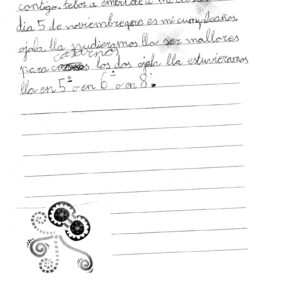 contigo.
dia 5 de noviembreqere es mi cumpleaños
ojala lla pudieramos lla ser mallores
para casarnos los dos ojala lla estuvieramos
lla en 5º o en 6º o en 8º.